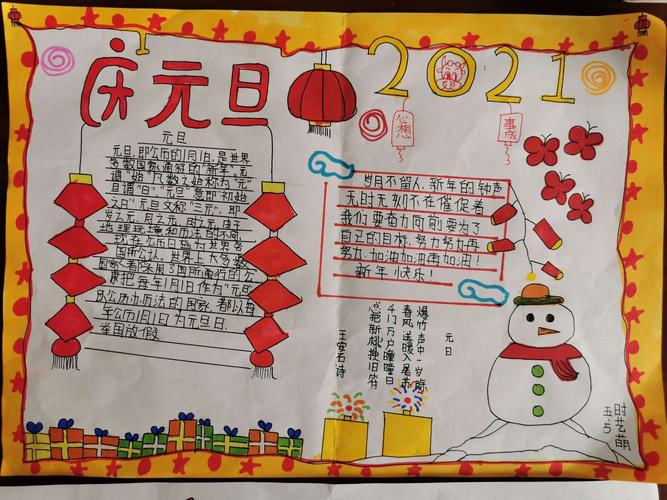 庆元旦
2021
心想
事成
元旦
元旦,即公历的1月1日,是世界
多数国家通称的"新年"。元
谓"始",凡数之始称为"元"
旦谓"日","元旦"意即"初始
之日"。元旦又称"三元",即
岁之元、月之元、时之元。由于
地理环境和历法的不同
家都采用了国际通行的公
历把每年1月1日作为"元旦
年公历1月1日为元旦日.
全国放假
岁月不留人,新年的钟声
无时无刻不在催促着
我们要奋力向前要为了
自己的目标,努力努力再
努力,加油加油再加油!
新年快乐!
元日
爆竹声中一岁除
春风送暖入屠苏
千门万户曈曈日
总把新桃换旧符
王安石诗
时艺萌
五5